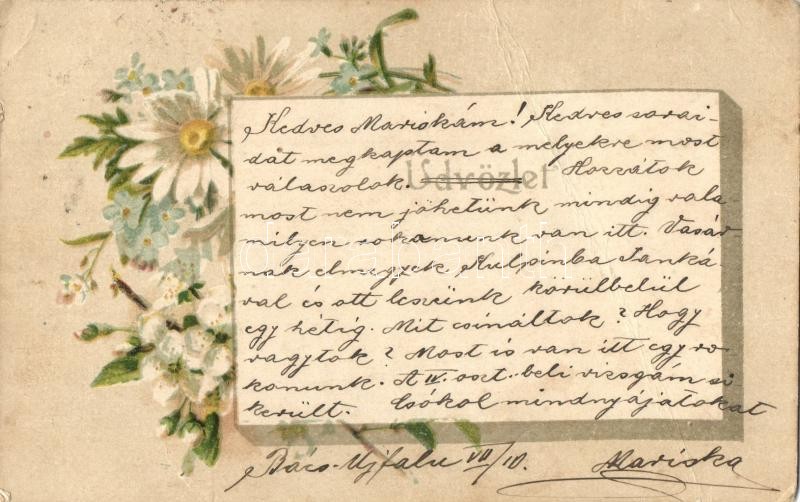 Kedves Mariskám! Kedves sorai-
dat megkaptam a melyekre most
válaszolok. Üdvözlet Hozzátok
most nem jöhetünk mindig vala
milyen rokonunk van itt. Vasár-
nak elmegyek Kulpinba Janká-
val és ott leszünk körülbelül
egy hétig. Mit csináltok? Hogy
vagytok? Most is van itt egy ro
konunk. A IV. oszt. beli vizsgám si
került. Csókol mindnyájatokat
Bács-Ujfalu VII/10. Mariska